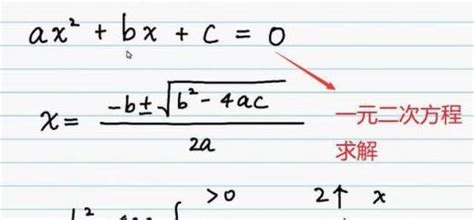 ax² + bx + c = 0
x = (-b ± √(b² - 4ac)) / 2a
一元二次方程
求解
>0 2↑ x